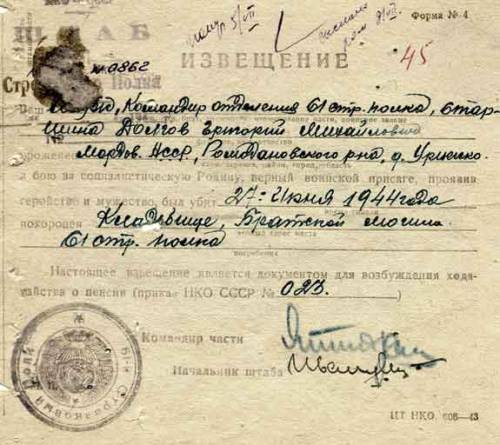 Форма № 4
ШТАБ
№ 0862
45
ИЗВЕЩЕНИЕ
Полка
муж, Командир отделения 61 стр. полка, стар-
шина Долгов Григорий Михайлович
Мордов. АССР, Ромодановского р-на, д.
в бою за социалистическую Родину, верный воинской присяге, проявив
геройство и мужество, был убит 27 июня 1944 года
похоронен Кладбище, Братской могиле
61 стр. полка
Настоящее извещение является документом для возбуждения хода-
тайства о пенсии (приказ НКО СССР № 023.
Командир части
Начальник штаба
61-й Стрелковый Полк
ЦТ НКО. 606—43